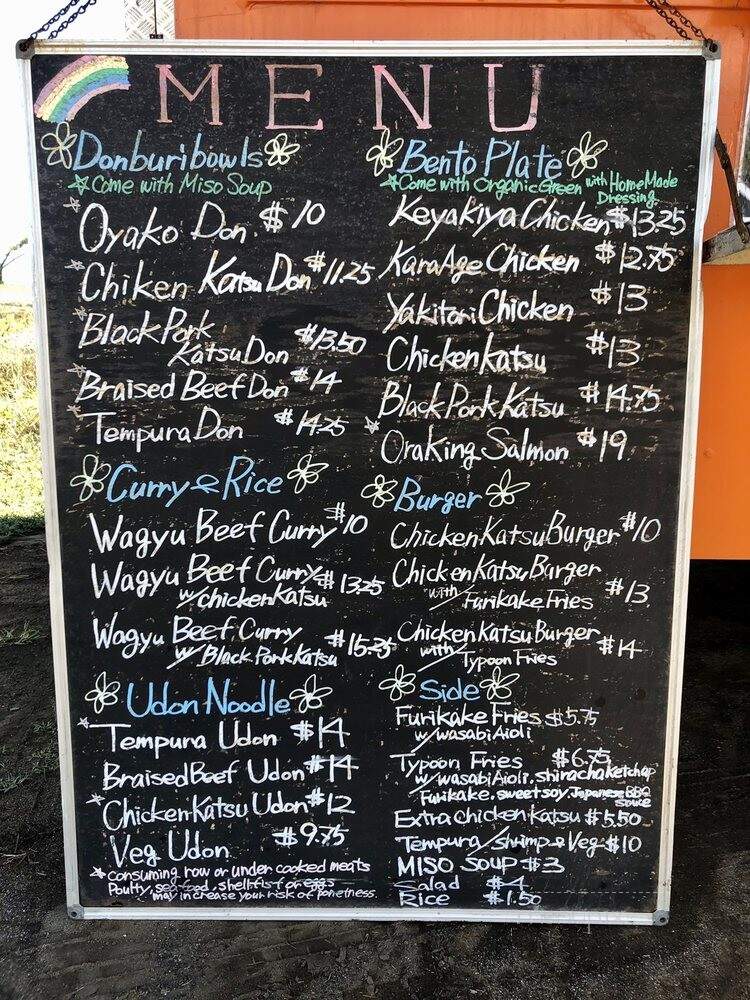 MENU
Donburi bowls
☆ Come with Miso Soup
☆ Oyako Don $10
☆ Chiken Katsu Don $11.25
☆ Black Pork
Katsu Don $13.50
☆ Braised Beef Don $14
☆ Tempura Don $14.25
Curry & Rice
Wagyu Beef Curry $10
Wagyu Beef Curry $13.25
w/chicken Katsu
Wagyu Beef Curry $15.25
w/ Black Pork Katsu
Udon Noodle
☆ Tempura Udon $14
Braised Beef Udon $14
☆ Chicken Katsu Udon $12
Veg Udon $9.75
☆ consuming row or under cooked meats
Poulty, sea food, shellfist or eggs
may increase your risk of
Bento Plate
☆ Come with Organic Green with Home Made
Dressing
Keyakiya Chicken $13.25
KaraAge Chicken $12.75
Yakitori Chicken $13
Chicken katsu $13
Black Pork Katsu $14.75
☆ Ora King Salmon $19
Burger
Chicken Katsu Burger $10
Chicken Katsu Burger
with Furikake Fries $13
Chicken Katsu Burger $14
with Typoon Fries
Side
Furikake Fries $5.75
w/wasabi Aioli
Typoon Fries $6.75
w/wasabi Aioli, shiracha ketchap
Furikake, sweet soy, Japanese BBQ
souce
Extra chicken Katsu $5.50
Tempura/shrimp & Veg $10
MISO SOUP $3
Salad $4
Rice $1.50